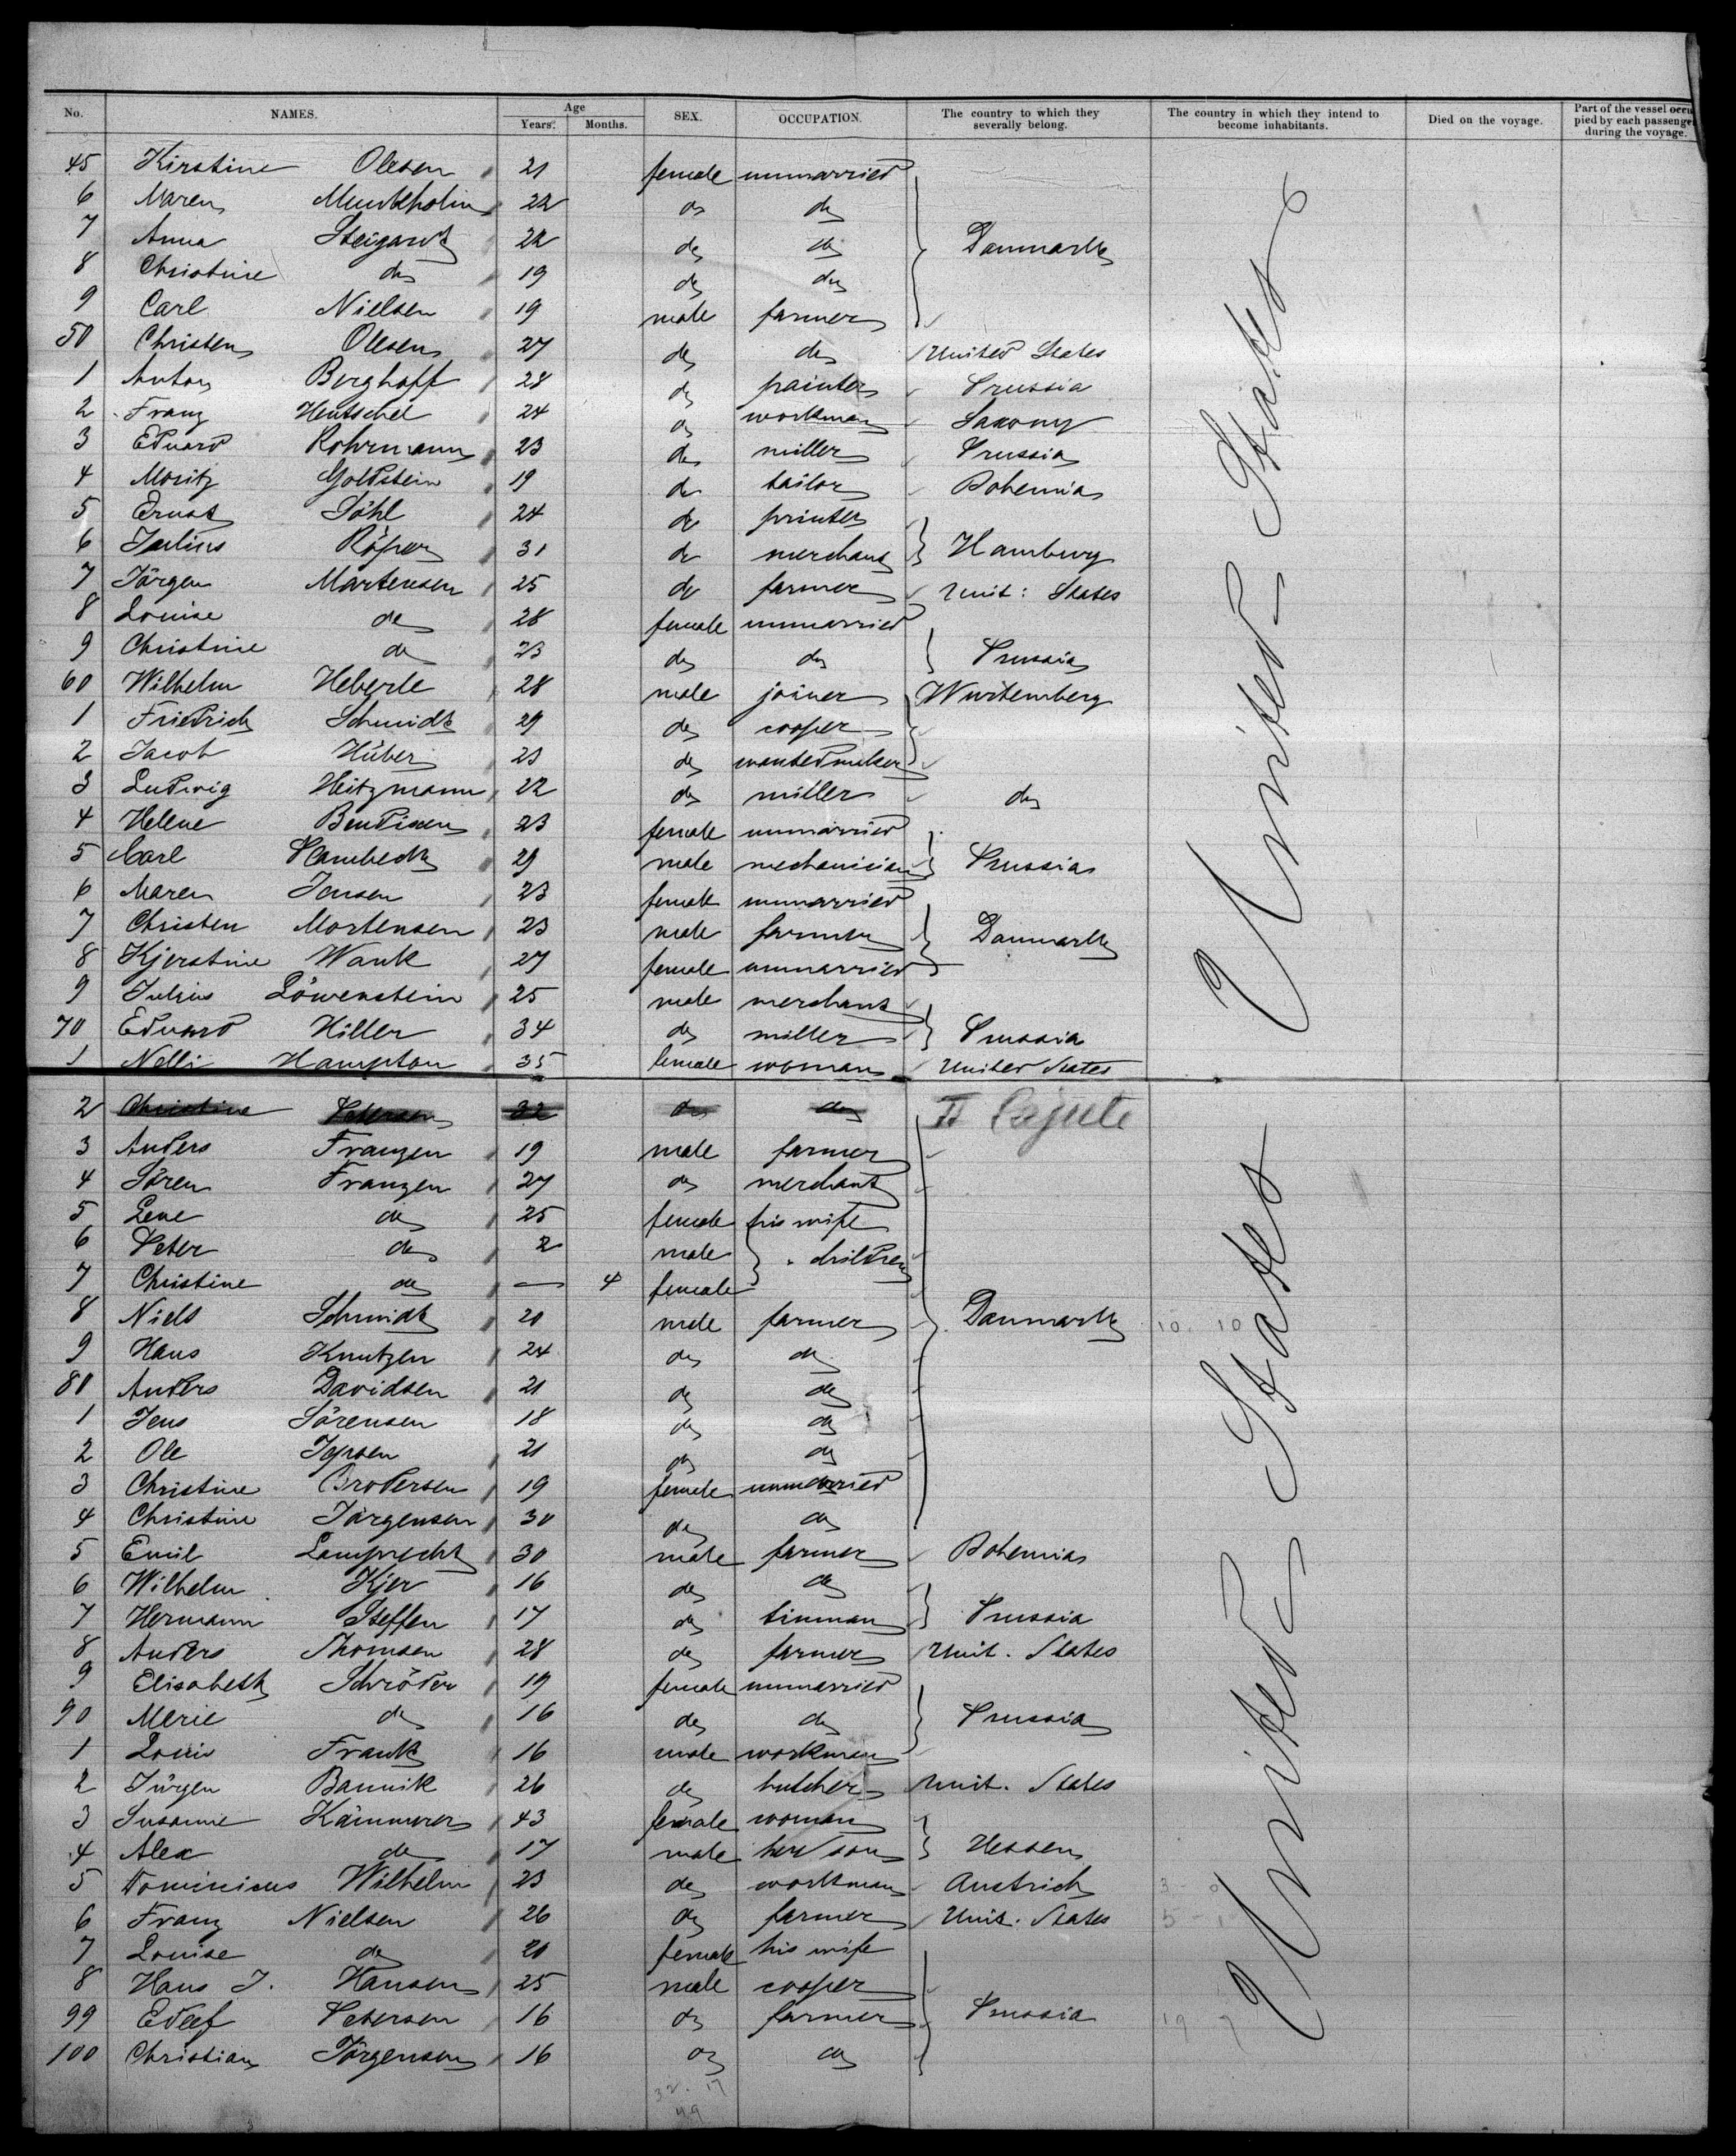 No. NAMES. Age Years. Months. SEX. OCCUPATION. The country to which they severally belong. The country in which they intend to become inhabitants. Died on the voyage. Part of the vessel occupied by each passenger during the voyage.
45 Kirstine Olesen 21 female unmarried
6 Maren Munkholm 22 do do
7 Anna Steigardt 22 do do Danmark
8 Christine do 19 do do
9 Carl Nielsen 19 male farmer
50 Christen Olesen 27 do do United States
1 Anton Berghoff 28 do painter Prussia
2 Franz Hentschel 24 do workman Saxony
3 Eduard Rohrmann 23 do miller Prussia
4 Moritz Goldstein 19 do tailor Bohemia
5 Ernst Pöhl 24 do printer
6 Julius Röper 31 do merchant Hamburg
7 Jörgen Martensen 25 do farmer Unit: States
8 Louise do 28 female unmarried
9 Christine do 23 do do Prussia
60 Wilhelm Heberle 28 male joiner Wurtemberg
1 Friedrich Schmidt 29 do cooper
2 Jacob Huber 23 do
3 Ludwig Heitzmann 22 do miller do
4 Helene Bendixen 23 female unmarried
5 Carl Plambeck 29 male mechanician Prussia
6 Maren Jensen 23 female unmarried
7 Christen Mortensen 23 male farmer Danmark
8 Kjerstine Wank 27 female unmarried
9 Julius Löwenstein 25 male merchant
70 Eduard Hiller 34 do miller Prussia
1 Nelli Hampton 35 female woman United States
United States
2 Christine Petersen 32 do do II Cajüte
3 Anders Franzen 19 male farmer
4 Sören Franzen 27 do merchant
5 Lene do 25 female his wife
6 Peter do 2 male children
7 Christine do — 4 female
8 Niels Schmidt 20 male farmer Danmark 10. 10
9 Hans Knutzen 24 do do
80 Anders Davidsen 21 do do
1 Jens Sörensen 18 do do
2 Ole Jepsen 21 do do
3 Christine Brodersen 19 female unmarried
4 Christine Jörgensen 30 do do
5 Emil Lamprecht 30 male farmer Bohemia
6 Wilhelm Kjer 16 do do
7 Hermann Steffen 17 do tinman Prussia
8 Anders Thomsen 28 do farmer Unit. States
9 Elisabeth Schröder 19 female unmarried
90 Merie do 16 do do Prussia
1 Louis Frank 16 male workman
2 Jürgen Bannik 26 do butcher Unit. States
3 Susanne Kämmerer 43 female woman
4 Alex do 17 male her son Hessen
5 Dominicus Wilhelm 23 do workman Austrich
6 Franz Nielsen 26 do farmer Unit. States
7 Louise do 20 female his wife
8 Hans J. Hansen 25 male cooper
99 Edlef Petersen 16 do farmer Prussia 19 7
100 Christian Jörgensen 16 do do
United States
32. 17
49